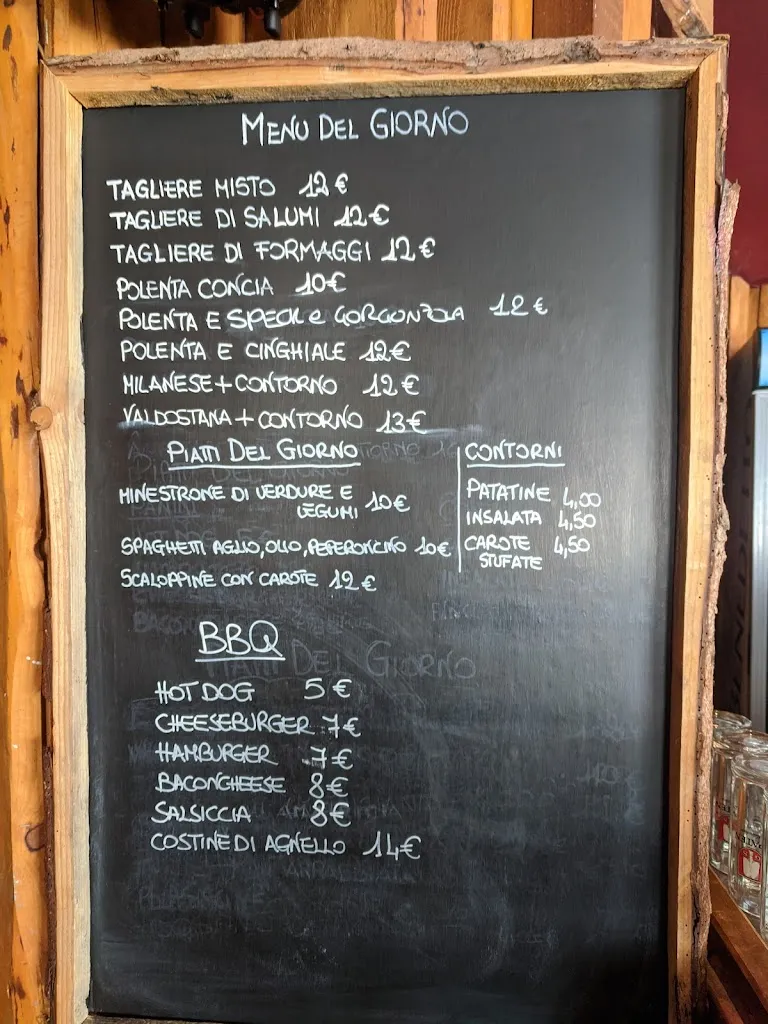 MENU DEL GIORNO
TAGLIERE MISTO 12€
TAGLIERE DI SALUMI 12€
TAGLIERE DI FORMAGGI 12€
POLENTA CONCIA 10€
POLENTA E SPECK e GORGONZOLA 12€
POLENTA E CINGHIALE 12€
MILANESE+CONTORNO 12€
VALDOSTANA+CONTORNO 13€
PIATTI DEL GIORNO
MINESTRONE DI VERDURE E
LEGUMI 10€
SPAGHETTI AGLIO, OLIO, PEPERONCINO 10€
SCALOPPINE CON CAROTE 12€
CONTORNI
PATATINE 4,00
INSALATA 4,50
CAROTE 4,50
STUFATE
BBQ
PIATTI DEL GIORNO
HOT DOG 5€
CHEESEBURGER 7€
HAMBURGER 7€
BACONCHEESE 8€
SALSICCIA 8€
COSTINE DI AGNELLO 14€